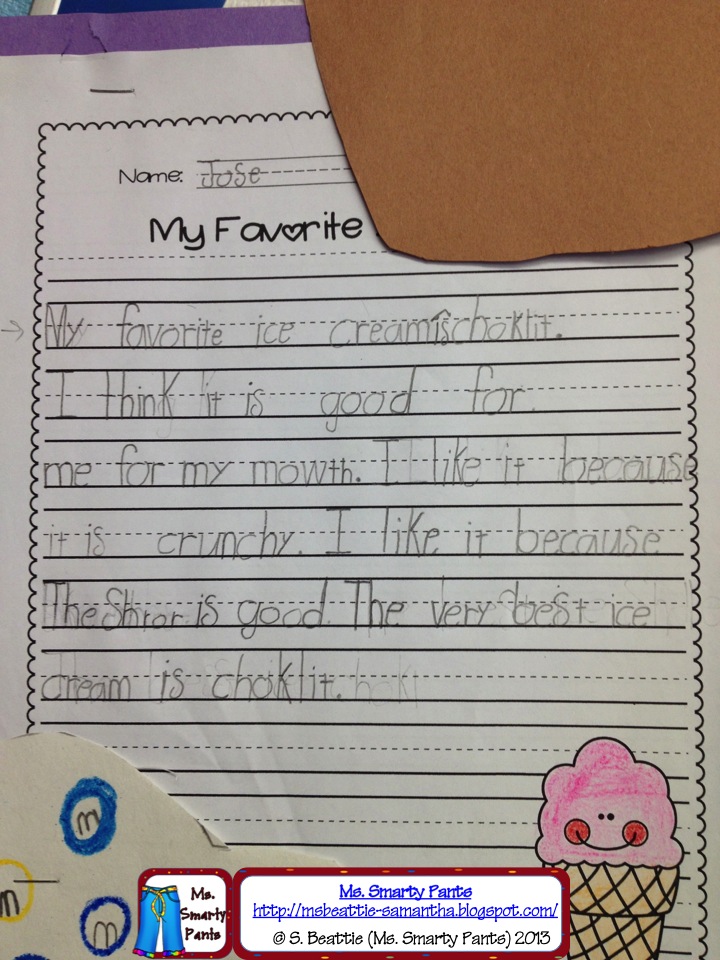 Name: Jose
My Favorite
My favorite ice cream is choklit.
I think it is good for
me for my mowth. I like it because
it is crunchy. I like it because
The is good. The very best ice
cream is choklit.
m
m
m
Ms.
Smarty
Pants
Ms. Smarty Pants
http://msbeattie-samantha.blogspot.com/
© S. Beattie (Ms. Smarty Pants) 2013